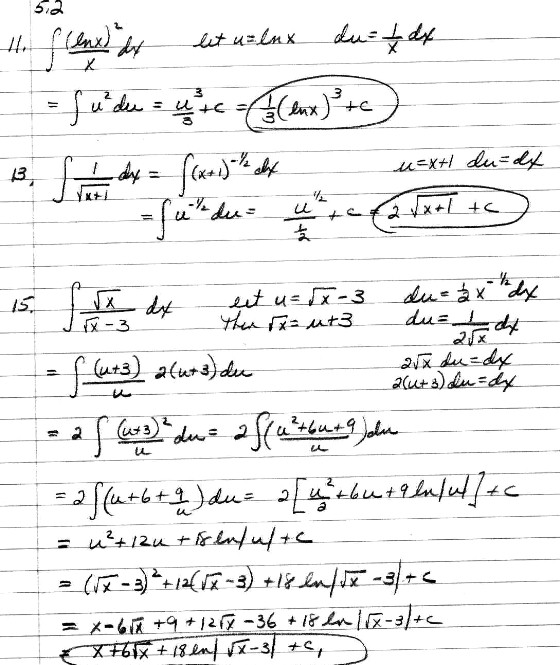 5.2
11. ∫ (lnx)²/x dx let u = lnx du = 1/x dx
= ∫ u² du = u³/3 + c = 1/3 (lnx)³ + c
13. ∫ 1/√(x+1) dx = ∫ (x+1)^(-1/2) dx u = x+1 du = dx
= ∫ u^(-1/2) du = u^(1/2)/(1/2) + c = 2√(x+1) + c
15. ∫ √x/(√x - 3) dx let u = √x - 3 du = 1/2 x^(-1/2) dx
then √x = u+3 du = 1/(2√x) dx
2√x du = dx
= ∫ (u+3)/u 2(u+3) du 2(u+3) du = dx
= 2 ∫ (u+3)²/u du = 2 ∫ (u²+6u+9)/u du
= 2 ∫ (u + 6 + 9/u) du = 2[u²/2 + 6u + 9 ln|u|] + c
= u² + 12u + 18 ln|u| + c
= (√x - 3)² + 12(√x - 3) + 18 ln|√x - 3| + c
= x - 6√x + 9 + 12√x - 36 + 18 ln|√x - 3| + c
= x + 6√x + 18 ln|√x - 3| + c₁